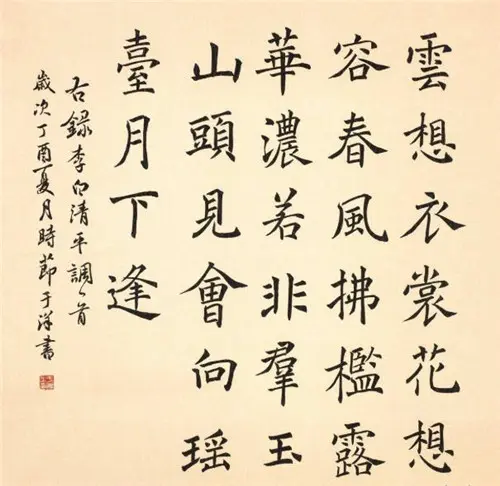 雲想衣裳花想
容春風拂檻露
華濃若非羣玉
山頭見會向瑶
臺月下逢
右録李白清平調一首
歲次丁酉夏月時節于洋書